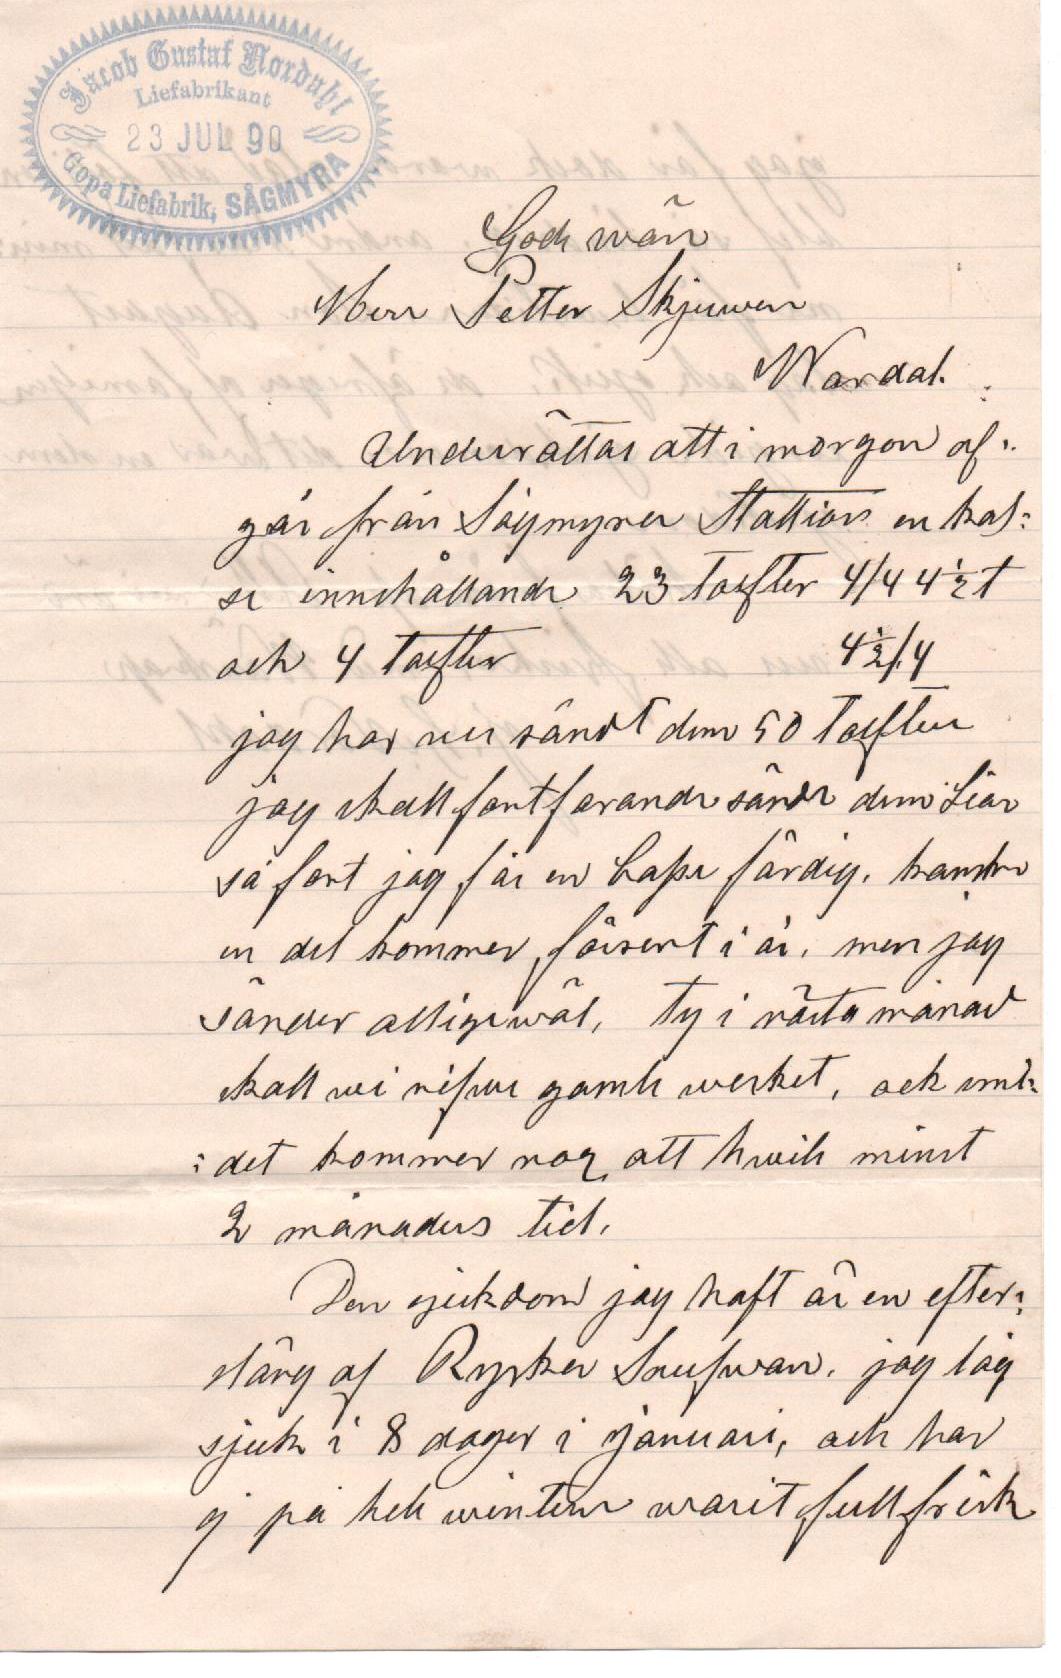 Jacob Gustaf Nordahl
Liefabrikant
23 JUL 90
Gopa Liefabrik, SÅGMYRA
God wän
Herr Petter Skjuwen
Wardal.
Underrättas att i morgon af:
går från Sågmyra Stattion en kas:
se innehållande 23 tolfter 4/4 4½t
och 4 tolfter 4½/4
jag har nu sändt dem 50 tolfter
jag skall fortfarande sände dem Liar
så fort jag får en Casse färdig, kanske
en del kommer försent i år, men jag
sänder alligewäl, ty i nästa månad
skall wi rifwa gamle werket, och smi:
:det kommer nog att hwile minst
2 månaders tid.
Den sjukdom jag haft är en efter:
släng af Ryska Snufwan. jag låg
sjuk i 8 dager i Januari, och har
ej på hele wintern warit fullfrisk